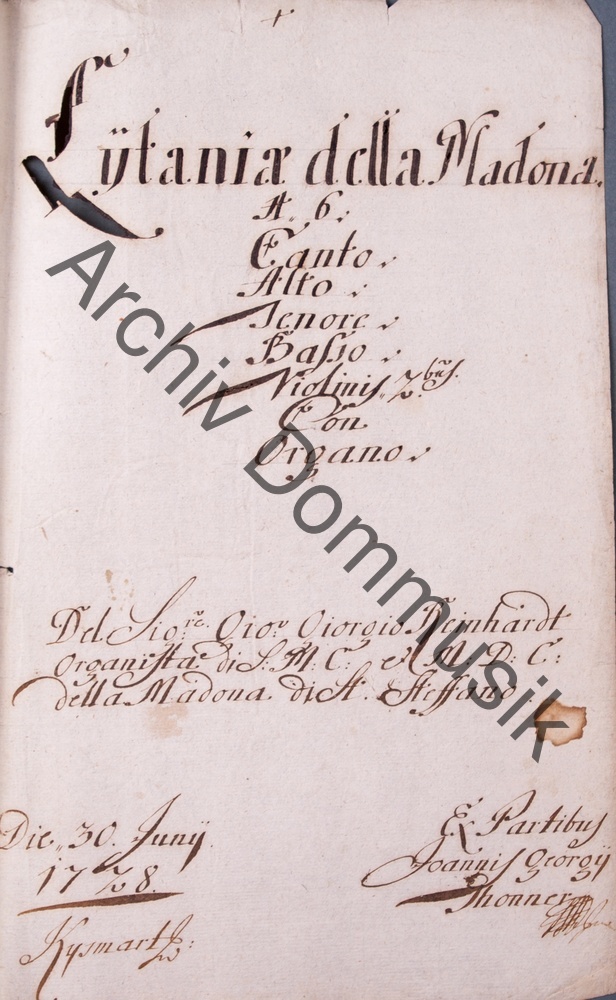 Lÿtaniæ della Madona.
A. 6.
Canto.
Alto.
Tenore.
Basso.
Violinis, 2.bus.
Con
Organo.
Del Sig:re Gio: Giorgio Reinhardt
Organista di S: M: C: et M: D: C:
della Madona di St. Steffano.
Die, 30. Junÿ
1728.
Kysmart
Ex Partibus
Joannis Georgÿ
Thonner
Archiv Dommusik